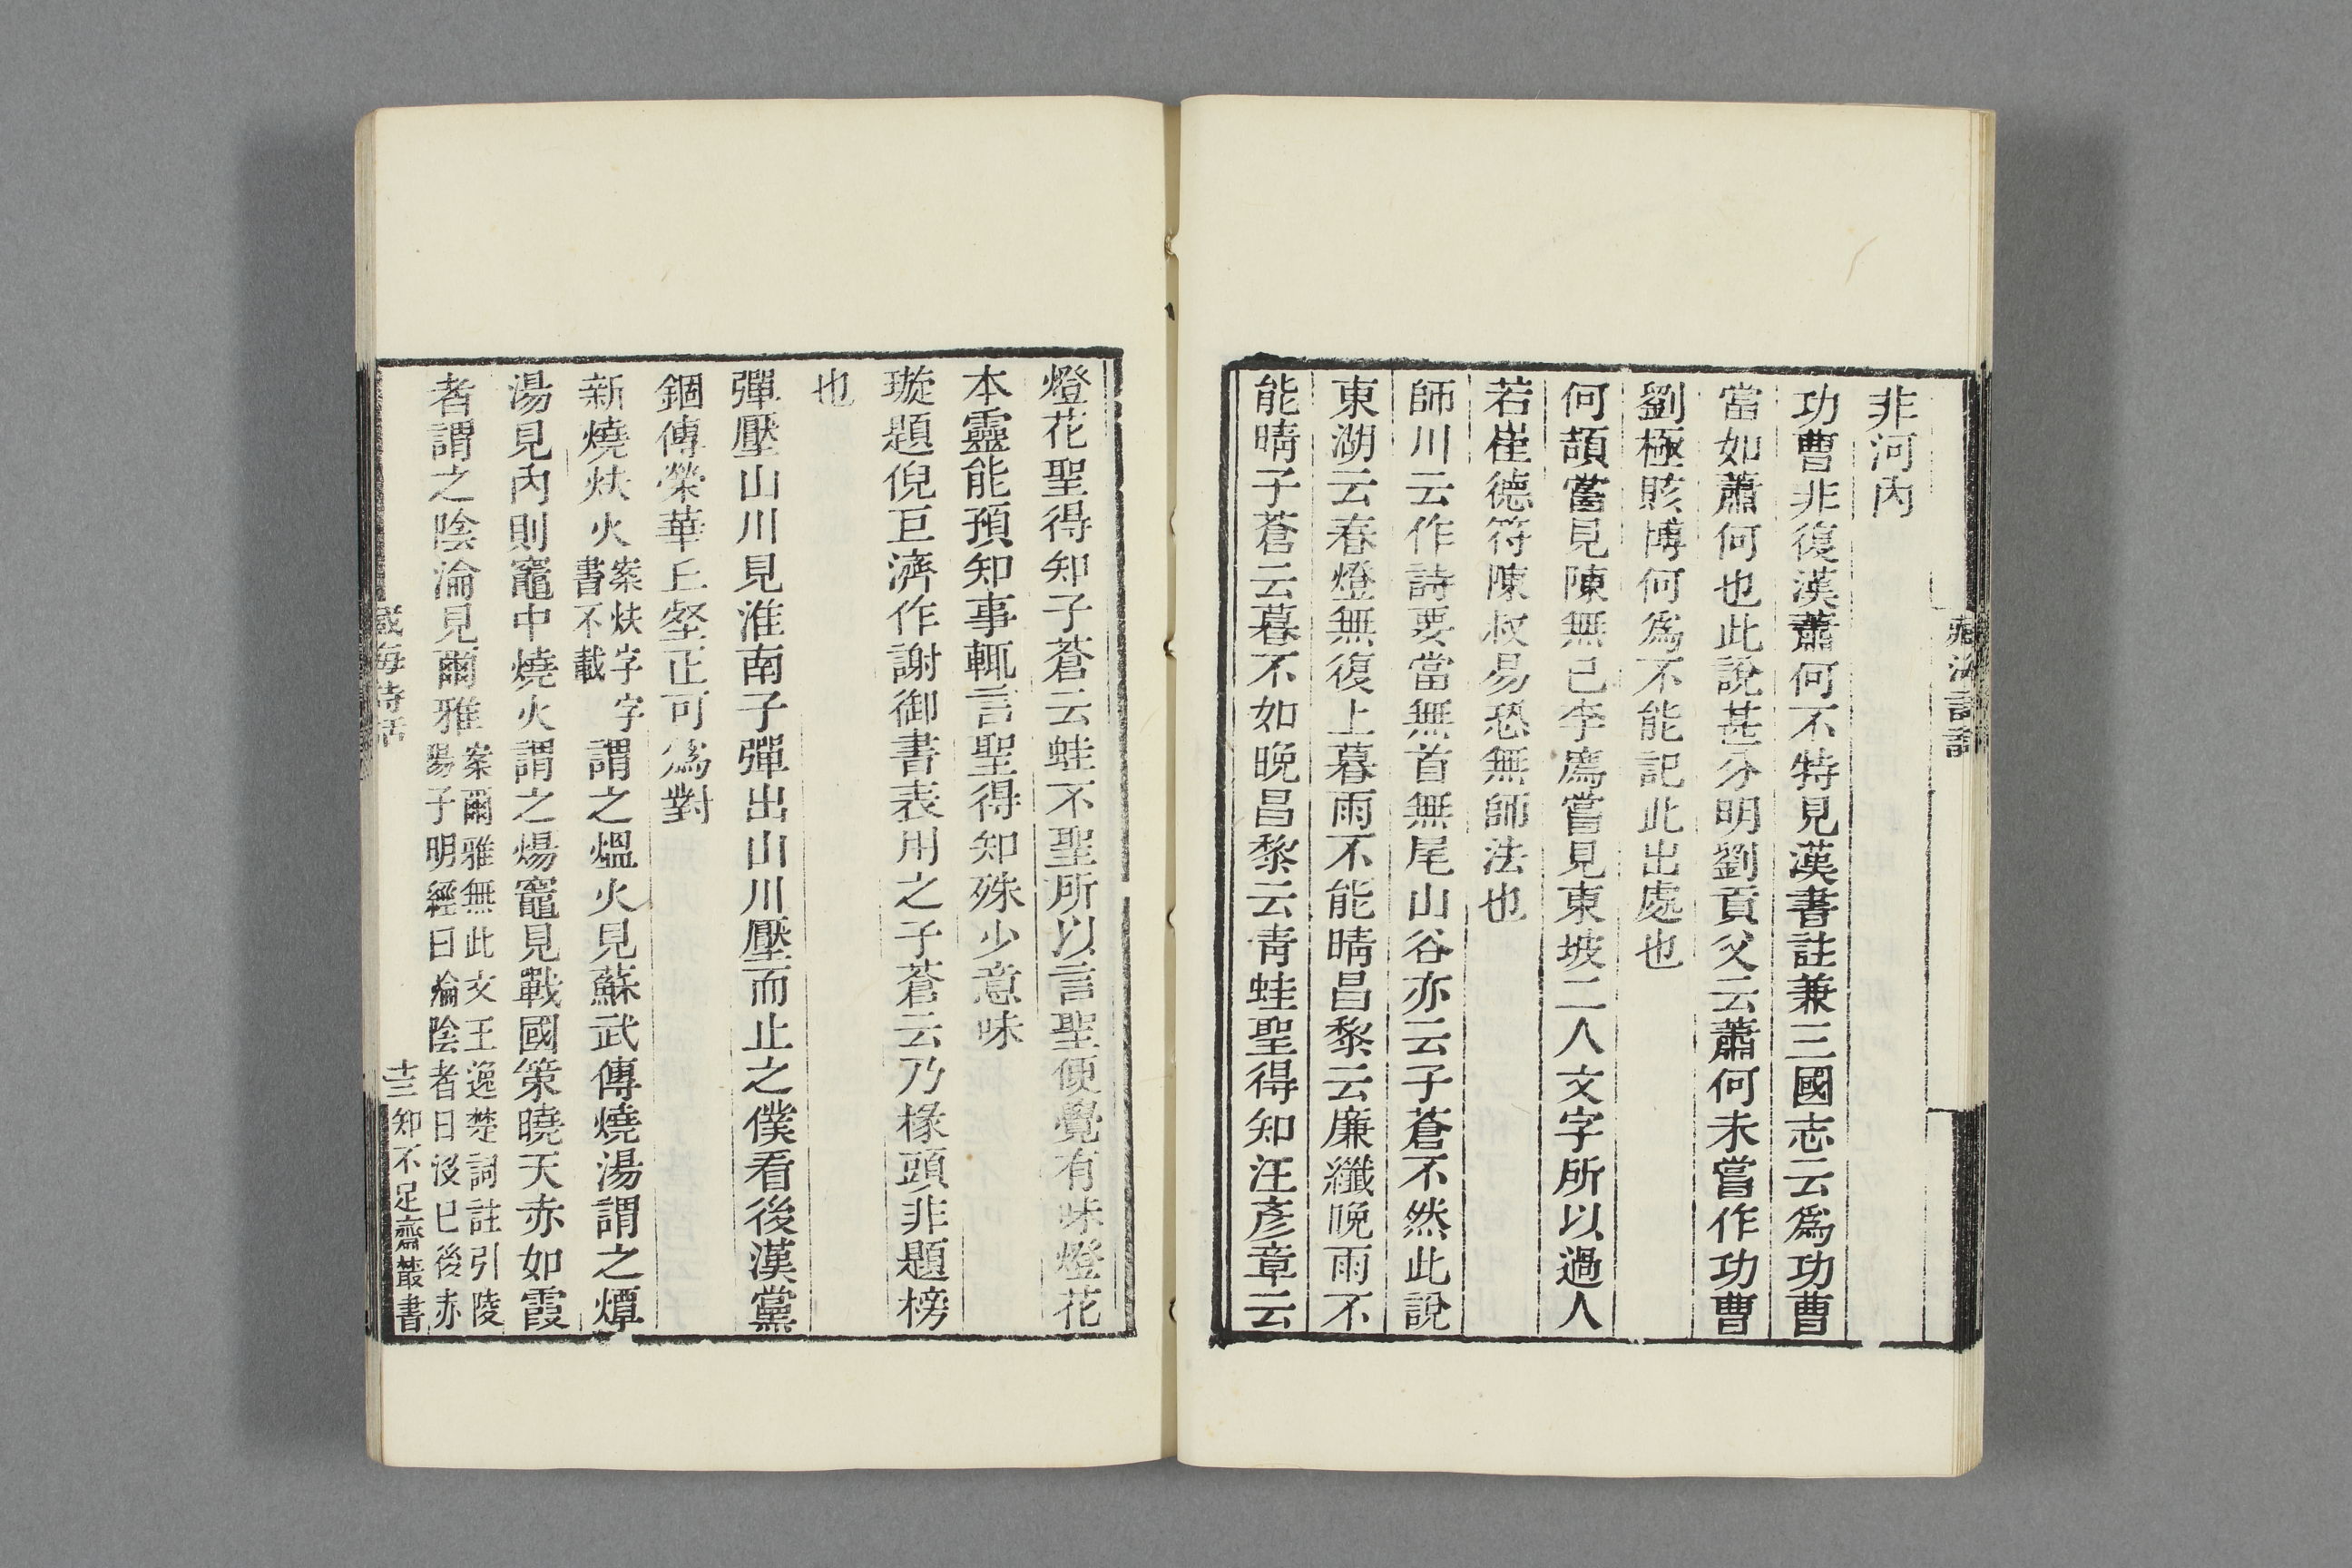 非河內
功曹非復漢蕭何不特見漢書註兼三國志云爲功曹
當如蕭何也此說甚分明劉貢父云蕭何未嘗作功曹
劉極賅博何爲不能記此出處也
何頡嘗見陳無已李廌嘗見東坡二人文字所以過人
若崔德符陳叔易恐無師法也
師川云作詩要當無首無尾山谷亦云子蒼不然此說
東湖云春燈無復上暮雨不能晴昌黎云廉纖晚雨不
能晴子蒼云暮不如晚昌黎云靑蛙聖得知汪彥章云
燈花聖得知子蒼云蛙不聖所以言聖便覺有味燈花
本靈能預知事輒言聖得知殊少意味
璇題倪巨濟作謝御書表用之子蒼云乃椽頭非題榜
也
彈壓山川見淮南子彈出山川壓而止之僕看後漢黨
錮傳榮華丘壑正可爲對
新燒炏火案炏字字書不載謂之熅火見蘇武傳燒湯謂之燂
湯見內則竈中燒火謂之煬竈見戰國策曉天赤如霞
者謂之陰淪見爾雅案爾雅無此文王逸楚詞註引陵陽子明經曰淪陰者日沒已後赤
藏海詩話
十三
知不足齋叢書